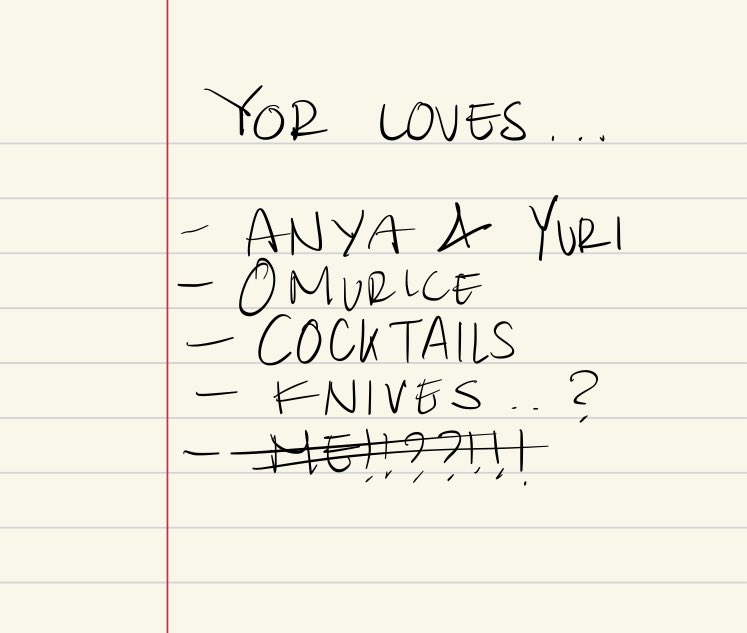 YOR LOVES...
- ANYA & YURI
- OMURICE
- COCKTAILS
- KNIVES...?
- ME!!!??!!!!